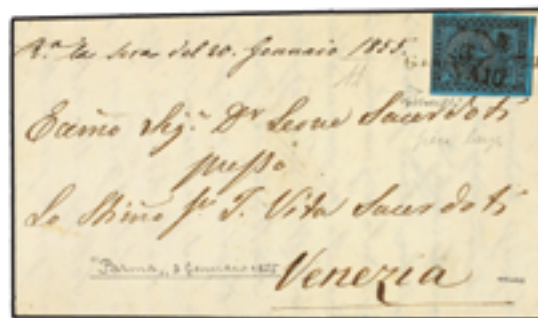 R.ª la sera del 20. Gennaro 1855.
Ecc̃mo Sig.r Dr Leone Sacerdoti
presso
Lo Stim̃o Sr. T. Vita Sacerdoti
"Parma,, 2 Gennaio 1855
Venezia